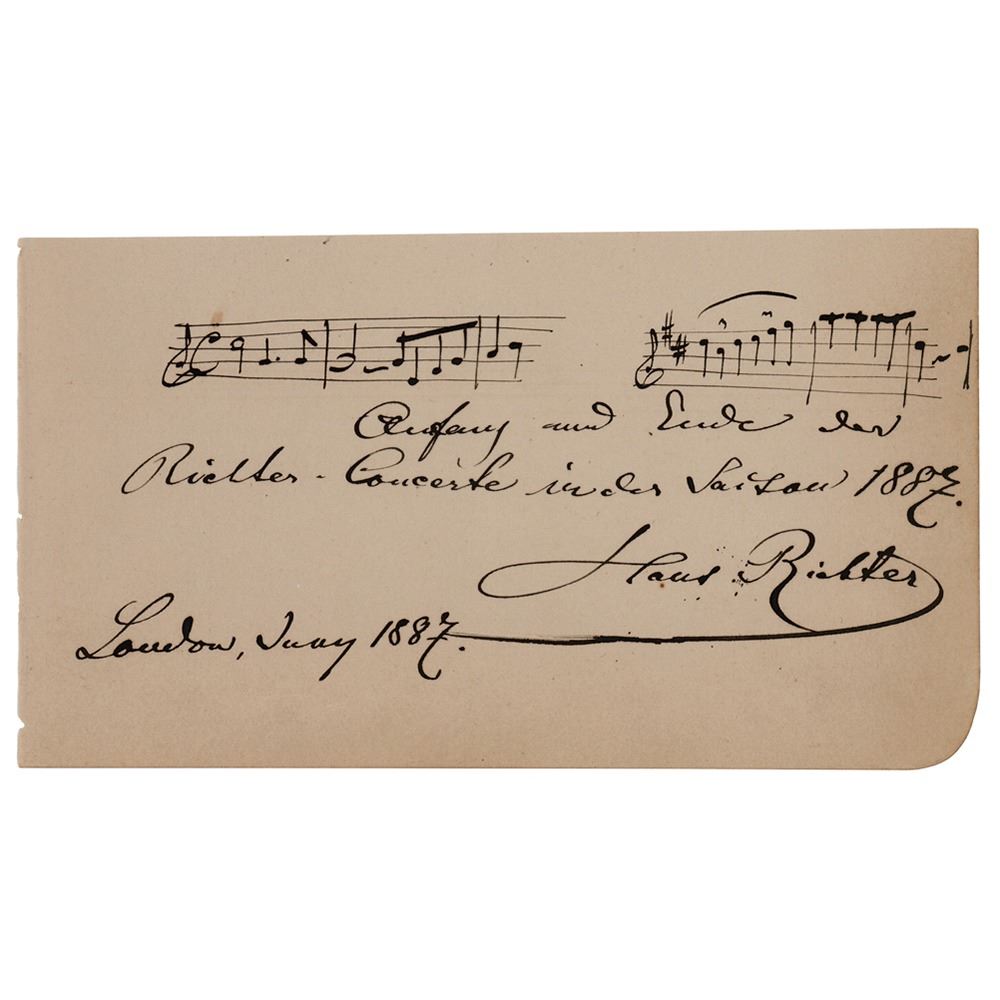 Anfang und Ende der
Richter-Concerte in der Saison 1887.
Hans Richter
London, Juny 1887.